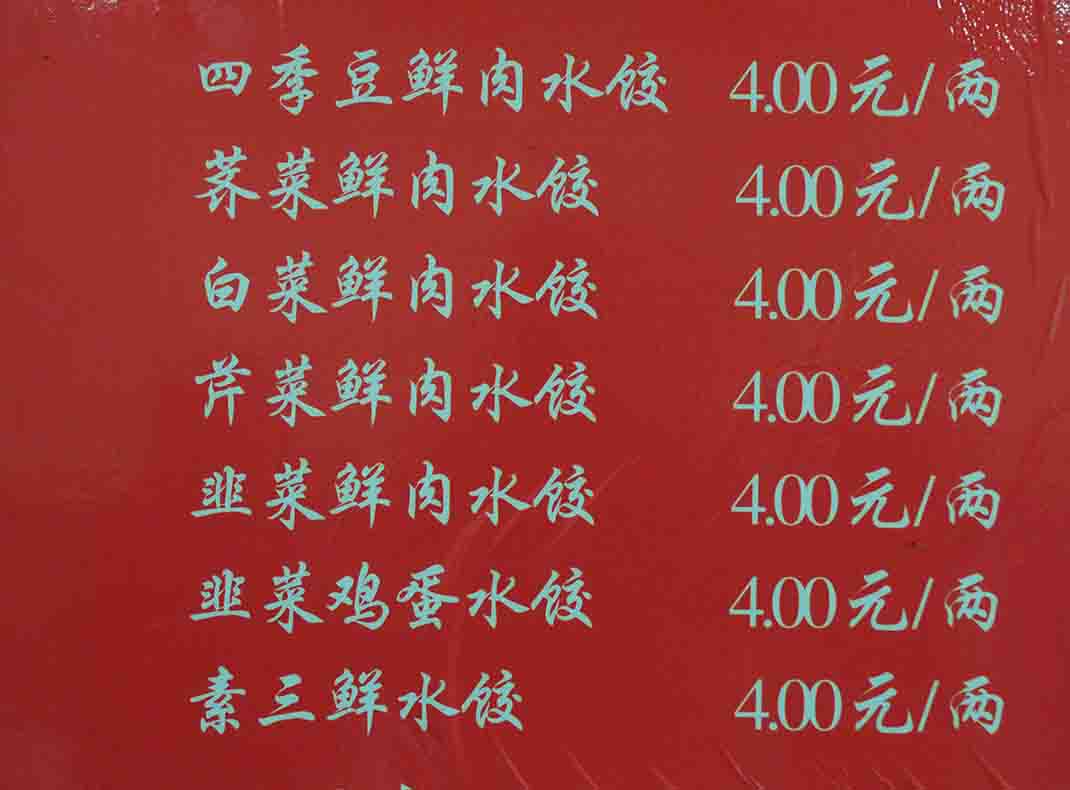 四季豆鲜肉水饺 4.00元/两
荠菜鲜肉水饺 4.00元/两
白菜鲜肉水饺 4.00元/两
芹菜鲜肉水饺 4.00元/两
韭菜鲜肉水饺 4.00元/两
韭菜鸡蛋水饺 4.00元/两
素三鲜水饺 4.00元/两